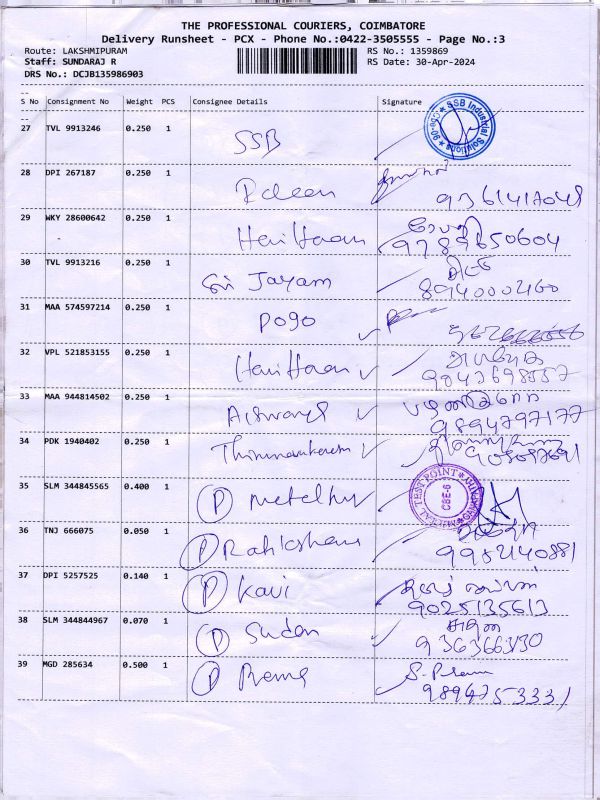 THE PROFESSIONAL COURIERS, COIMBATORE
Delivery Runsheet - PCX - Phone No.:0422-3505555 - Page No.:3
Route: LAKSHMIPURAM RS No.: 1359869
Staff: SUNDARAJ R RS Date: 30-Apr-2024
DRS No.: DCJB135986903
S No Consignment No Weight PCS Consignee Details Signature
27 TVL 9913246 0.250 1 SSB SSB Industrial Solutions
28 DPI 267187 0.250 1 9361417048
29 WKY 28600642 0.250 1 Hari Haran 9789650604
30 TVL 9913216 0.250 1 Sri Jayam 8940002160
31 MAA 574597214 0.250 1 Pogo
32 VPL 521853155 0.250 1 Hari Haran
33 MAA 944814502 0.250 1 9894797177
34 PDK 1940402 0.250 1
35 SLM 344845565 0.400 1 P METAL TEST POINT CBE-6
36 TNJ 666075 0.050 1 P 9952140881
37 DPI 5257525 0.140 1 P Kavi 9025135613
38 SLM 344844967 0.070 1 P Sudan
39 MGD 285634 0.500 1 P Prema S. Prem 9894253331